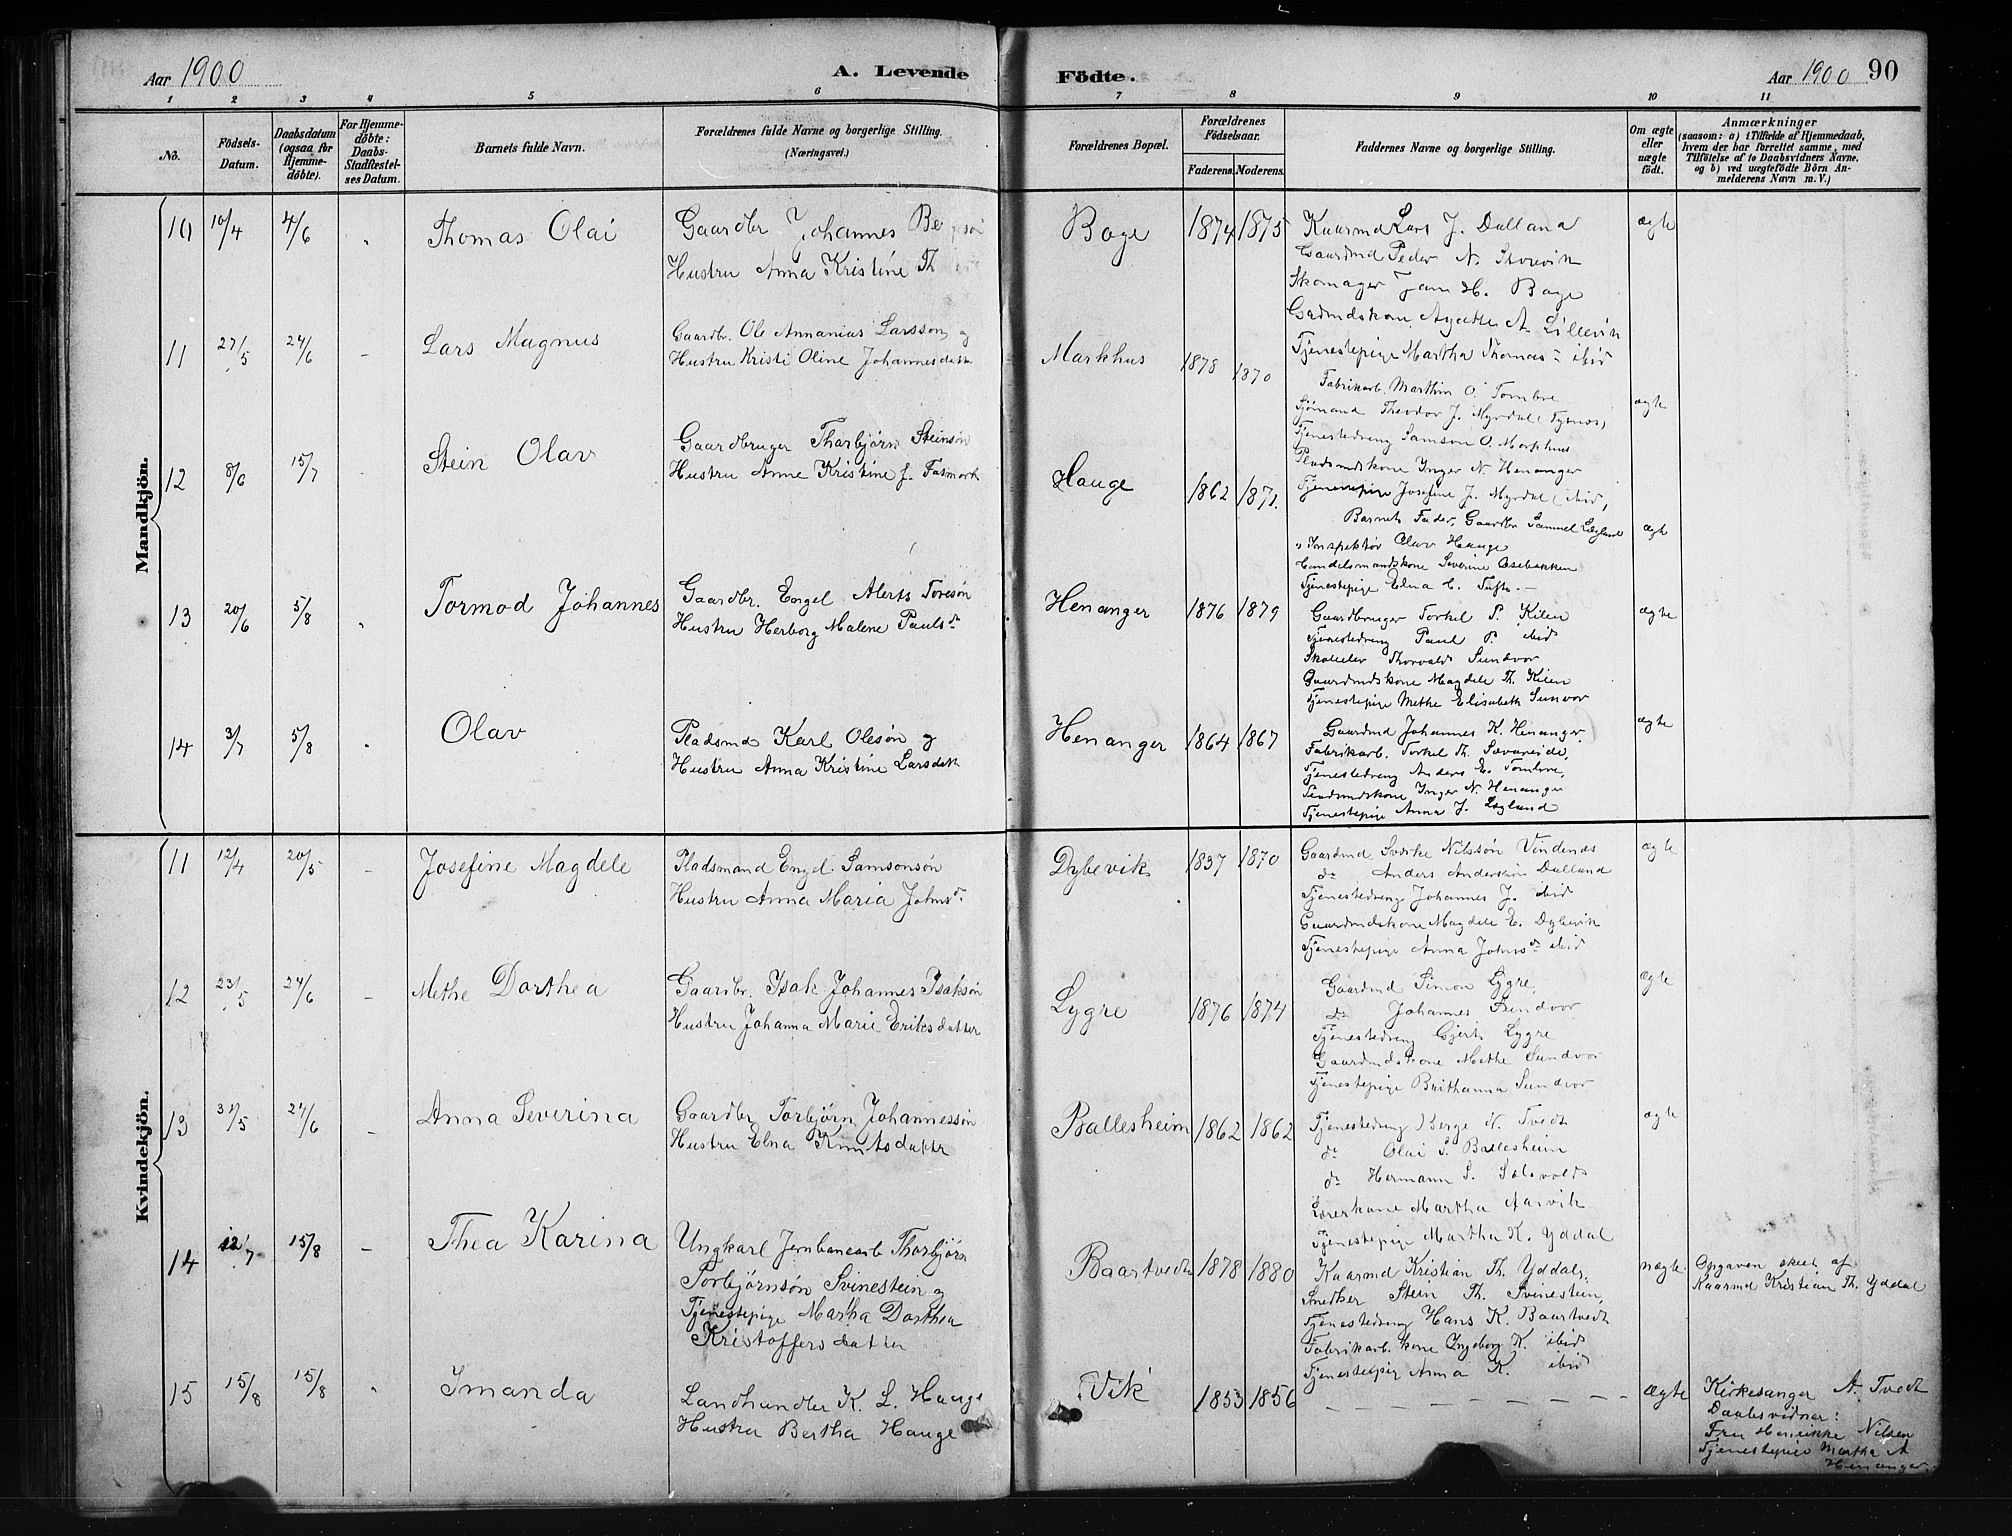 Aar 1900
A. Levende
Födte.
Aar 1900
90
1 2 3 4 5 6 7 8 9 10 11
No.
Födsels-
Datum.
Daabsdatum
(ogsaa for
Hjemme-
döbte).
For Hjemme-
döbte:
Daabs-
Stadfæstel-
ses Datum.
Barnets fulde Navn.
Forældrenes fulde Navne og borgerlige Stilling.
(Næringsvei.)
Forældrenes Bopæl.
Forældrenes
Födselsaar.
Faderens. Moderens.
Faddernes Navne og borgerlige Stilling.
Om ægte
eller
uægte
födt.
Anmærkninger
(saasom: a) i Tilfælde af Hjemmedaab,
hvem der har forrettet samme, med
Tilföielse af to Daabsvidners Navne,
og b) ved uægtefödte Börn An-
melderens Navn m. V.)
Mandkjön.
10 10/4 4/6 Thomas Olai
Gaardbr Johannes
Hustru Anna Kristine Th
Bage 1874 1875
Kaarmd Lars J. Dalland
Gaardmd Peder N. Storevik
Skomager Jan H. Bage
Gaardmdskone Agathe A. Lillevik
Tjenestepige Martha Thomasdr ibid
ægte
11 27/5 24/6 Lars Magnus
Gaardbr. Ole Annanias Larsson og
Hustru Kristi Oline Johannesdatter
Markhus 1878 1870
Fabrikarb. Marthin O. Tombre
Sjömand Theodor J. Myrdal (Tysnes)
Tjenestedreng Samson O. Markhus
Pladsmdskone Inger N. Henanger
Tjenestepige Josefine J. Myrdal (ibid)
ægte
12 8/6 15/7 Stein Olav
Gaardbruger Tharbjørn Steinsøn
Hustru Anne Kristine f. Fatmark
Hauge 1862 1871.
Barnets Fader, Gaardbr Samuel Lægland
Inspektør Olav Hauge
Handelsmandskone Severine Osebakken
Tjenestepige Edna C. Tufte
ægte
13 20/6 5/8 Tormod Johannes
Gaardbr. Engel Alerts Toresøn
Hustru Herborg Malene Paulsdr
Henanger 1876 1879
Gaardbruger Torkel P. Kilen
Tjenestedreng Paul P. ibid
Skoleelev Thorvald Sundvor
Gaardmdskone Magdele Th. Kilen
Tjenestepige Methe Elisabeth Sunvor
ægte
14 3/7 5/8 Olav
Pladsmd Karl Olesøn og
Hustru Anna Kristine Larsdatr
Henanger 1864 1867
Gaardmd Johannes K. Henanger,
Fabrikarb. Torkel Th. Sævareide,
Tjenestedreng Anders E. Tombre,
Pladsmdskone Inger N. Henanger
Tjenestepige Anna J. Lægland
ægte
Kvindekjön.
11 12/4 20/5 Josefine Magdele
Pladsmand Engel Samsonsøn
Hustru Anna Maria Johnsdr
Dybevik 1837 1870
Gaardmd Sverke Nilssøn Vindenes
do Anders Anderssøn Dalland
Tjenestedreng Johannes J. ibid
Gaardmdskone Magdele E. Dybevik
Tjenestepige Anna Johnsdr ibid
ægte
12 23/5 24/6 Methe Dorthea
Gaardbr. Isak Johannes Isaksøn
Hustru Johanna Marie Eriksdatter
Lygre 1876 1874
Gaardmd Simon Lygre,
do Johannes Sundvor
Tjenestedreng Gjert Lygre
Gaardmdskone Methe Sundvor
Tjenestepige Brithanna Sundvor
ægte
13 31/5 24/6 Anna Severina
Gaardbr Torbjørn Johannessøn
Hustru Elna Knutsdatter
Ballesheim 1862 1862
Tjenestedreng Berge N. Tvedt
do Olai S. Ballesheim
do Hermann S. Salsvold
Lærerkone Martha Aarvik
Tjenestepige Martha K. Yddal
ægte
14 12/7 15/8 Thea Karina
Ungkarl Jernbanearb Thorbjørn
Torbjørnsøn Svinestein og
Tjenestepige Martha Dorthea
Kristoffersdatter
Baartvedt 1878 1880
Kaarmd Kristian Th. Yddal,
Snedker Stein Th. Svinestein,
Tjenestedreng Hans K. Baartvedt
Fabrikarb. kone Ingeborg K. ibid
Tjenestepige Anna K. ibid
uægte
Opgaven skeet af
Kaarmd Kristian Th. Yddal
15 15/8 15/8 Imanda
Landhandler K. L. Hauge
Hustru Bertha Hauge
Vik 1853 1856
ægte
Kirkesanger A. Tvedt
Daabsvidner:
Fru Henrikke Nilsen
Tjenestepige Martha A
Henanger.